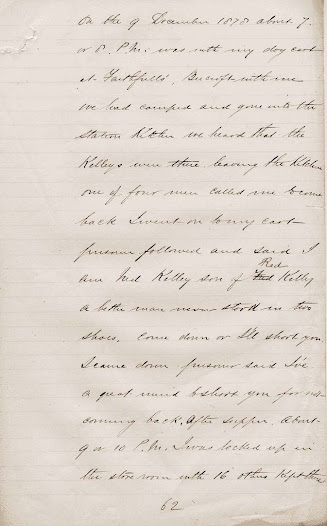 On the 9 December 1878 about 7.
or 8. P.M. was with my dog cart
at Faithfulls', Beecroft with me
we had camped and gone into the
Station Kitchen we heard that the
Kellys were there leaving the Kitchen
one of four men called me to come
back I went on to my cart
prisoner followed and said I
am Ned Kelley son of Red Kelly
a better man never stood in two
shoes, come down or I'll shoot you
I came down prisoner said I've
a great mind to shoot you for not
coming back. After supper. About
9 or 10 P.M. I was locked up in
the store room with 16 others Kept there
62